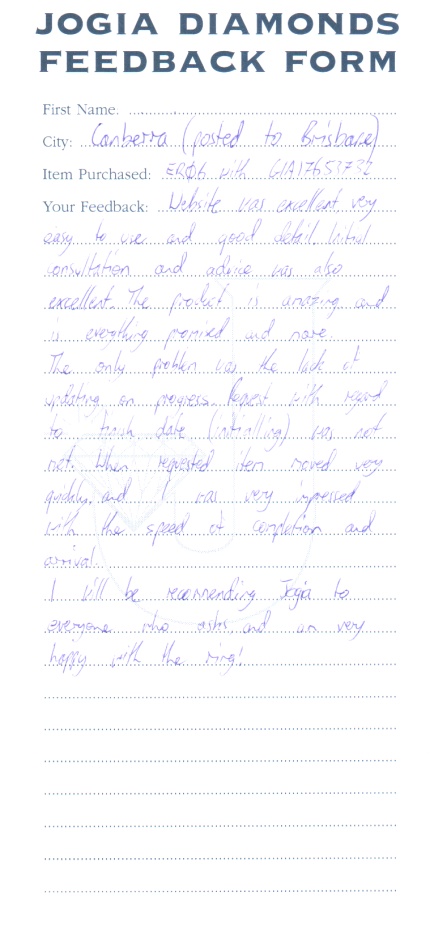 JOGIA DIAMONDS
FEEDBACK FORM
First Name.
City: Canberra (posted to Brisbane)
Item Purchased: ERØ6 with GIA17653732
Your Feedback: Website was excellent very
easy to use and good detail. Initial
consultation and advice was also
excellent. The product is amazing and
is everything promised and more.
The only problem was the lack of
updating on progress. Request with regard
to finish date (initialling) was not
met. When requested item moved very
quickly, and I was very impressed
with the speed of completion and
arrival.
I will be recommending Jogia to
everyone who asks, and am very
happy with the ring!